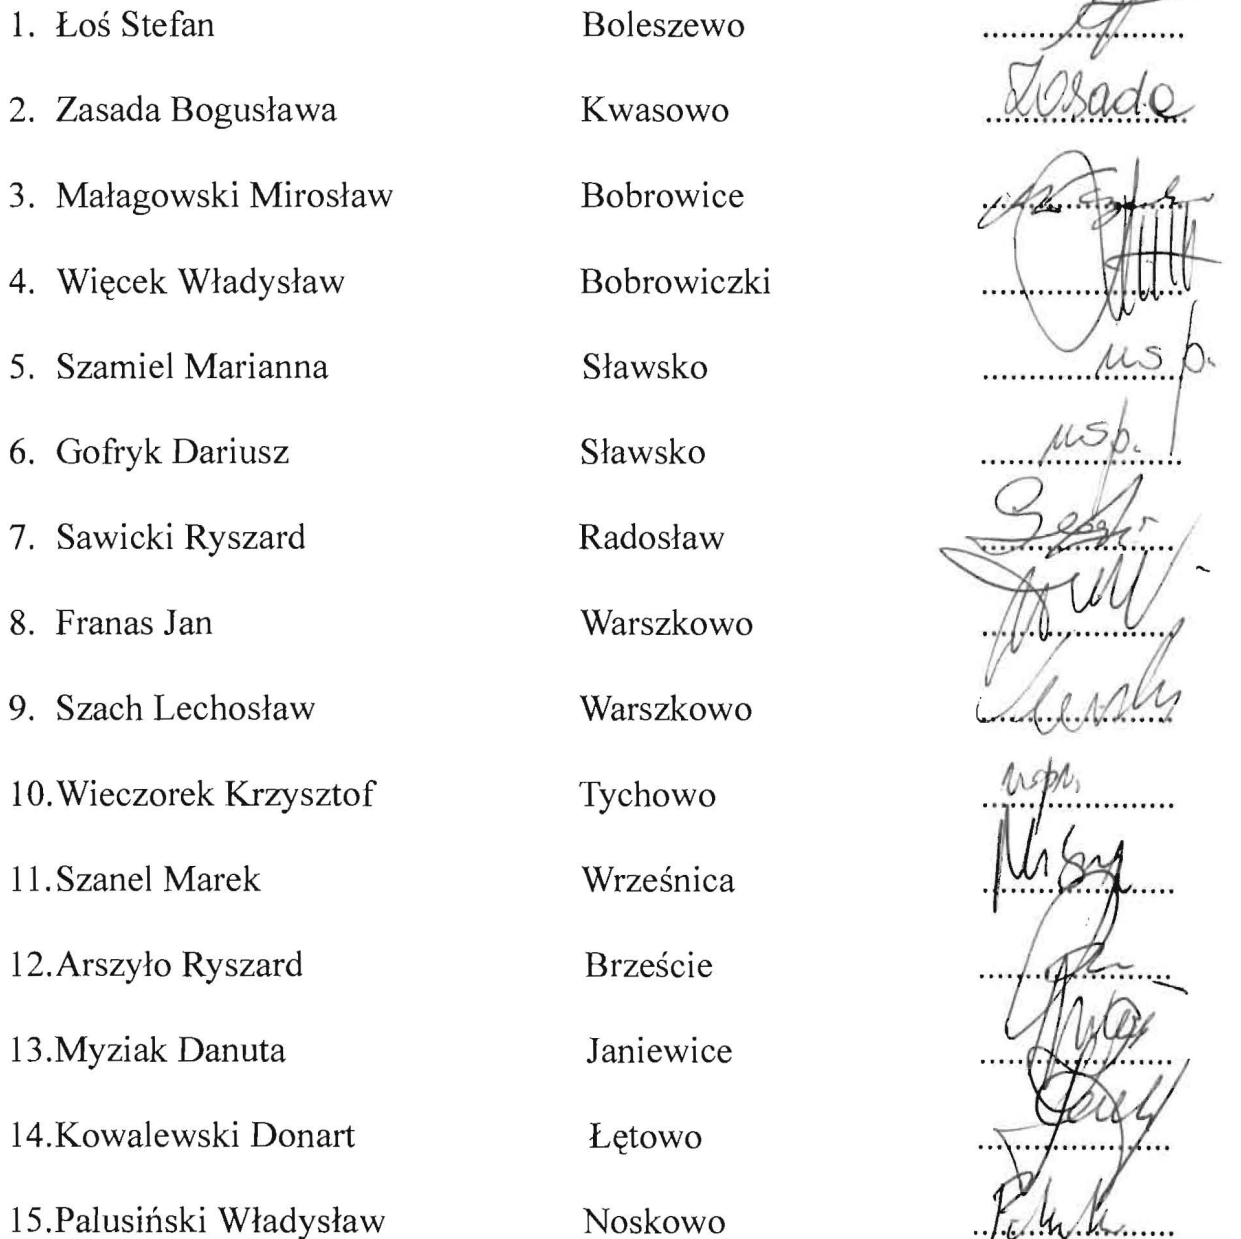 1. Łoś Stefan Boleszewo
2. Zasada Bogusława Kwasowo Zasada
3. Małagowski Mirosław Bobrowice
4. Więcek Władysław Bobrowiczki
5. Szamiel Marianna Sławsko usp.
6. Gofryk Dariusz Sławsko usp.
7. Sawicki Ryszard Radosław
8. Franas Jan Warszkowo
9. Szach Lechosław Warszkowo
10. Wieczorek Krzysztof Tychowo
11. Szanel Marek Wrześnica
12. Arszyło Ryszard Brzeście
13. Myziak Danuta Janiewice
14. Kowalewski Donart Łętowo
15. Palusiński Władysław Noskowo